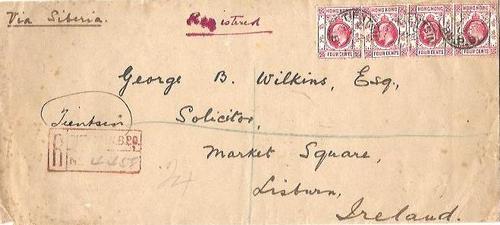 Via Siberia.
Registered
HONG KONG HONG KONG HONG KONG HONG KONG
FOUR CENTS FOUR CENTS FOUR CENTS FOUR CENTS
George B. Wilkins, Esq.,
Tientsin
Solicitor,
R B.P.O.
Market Square,
Lisburn,
Ireland.